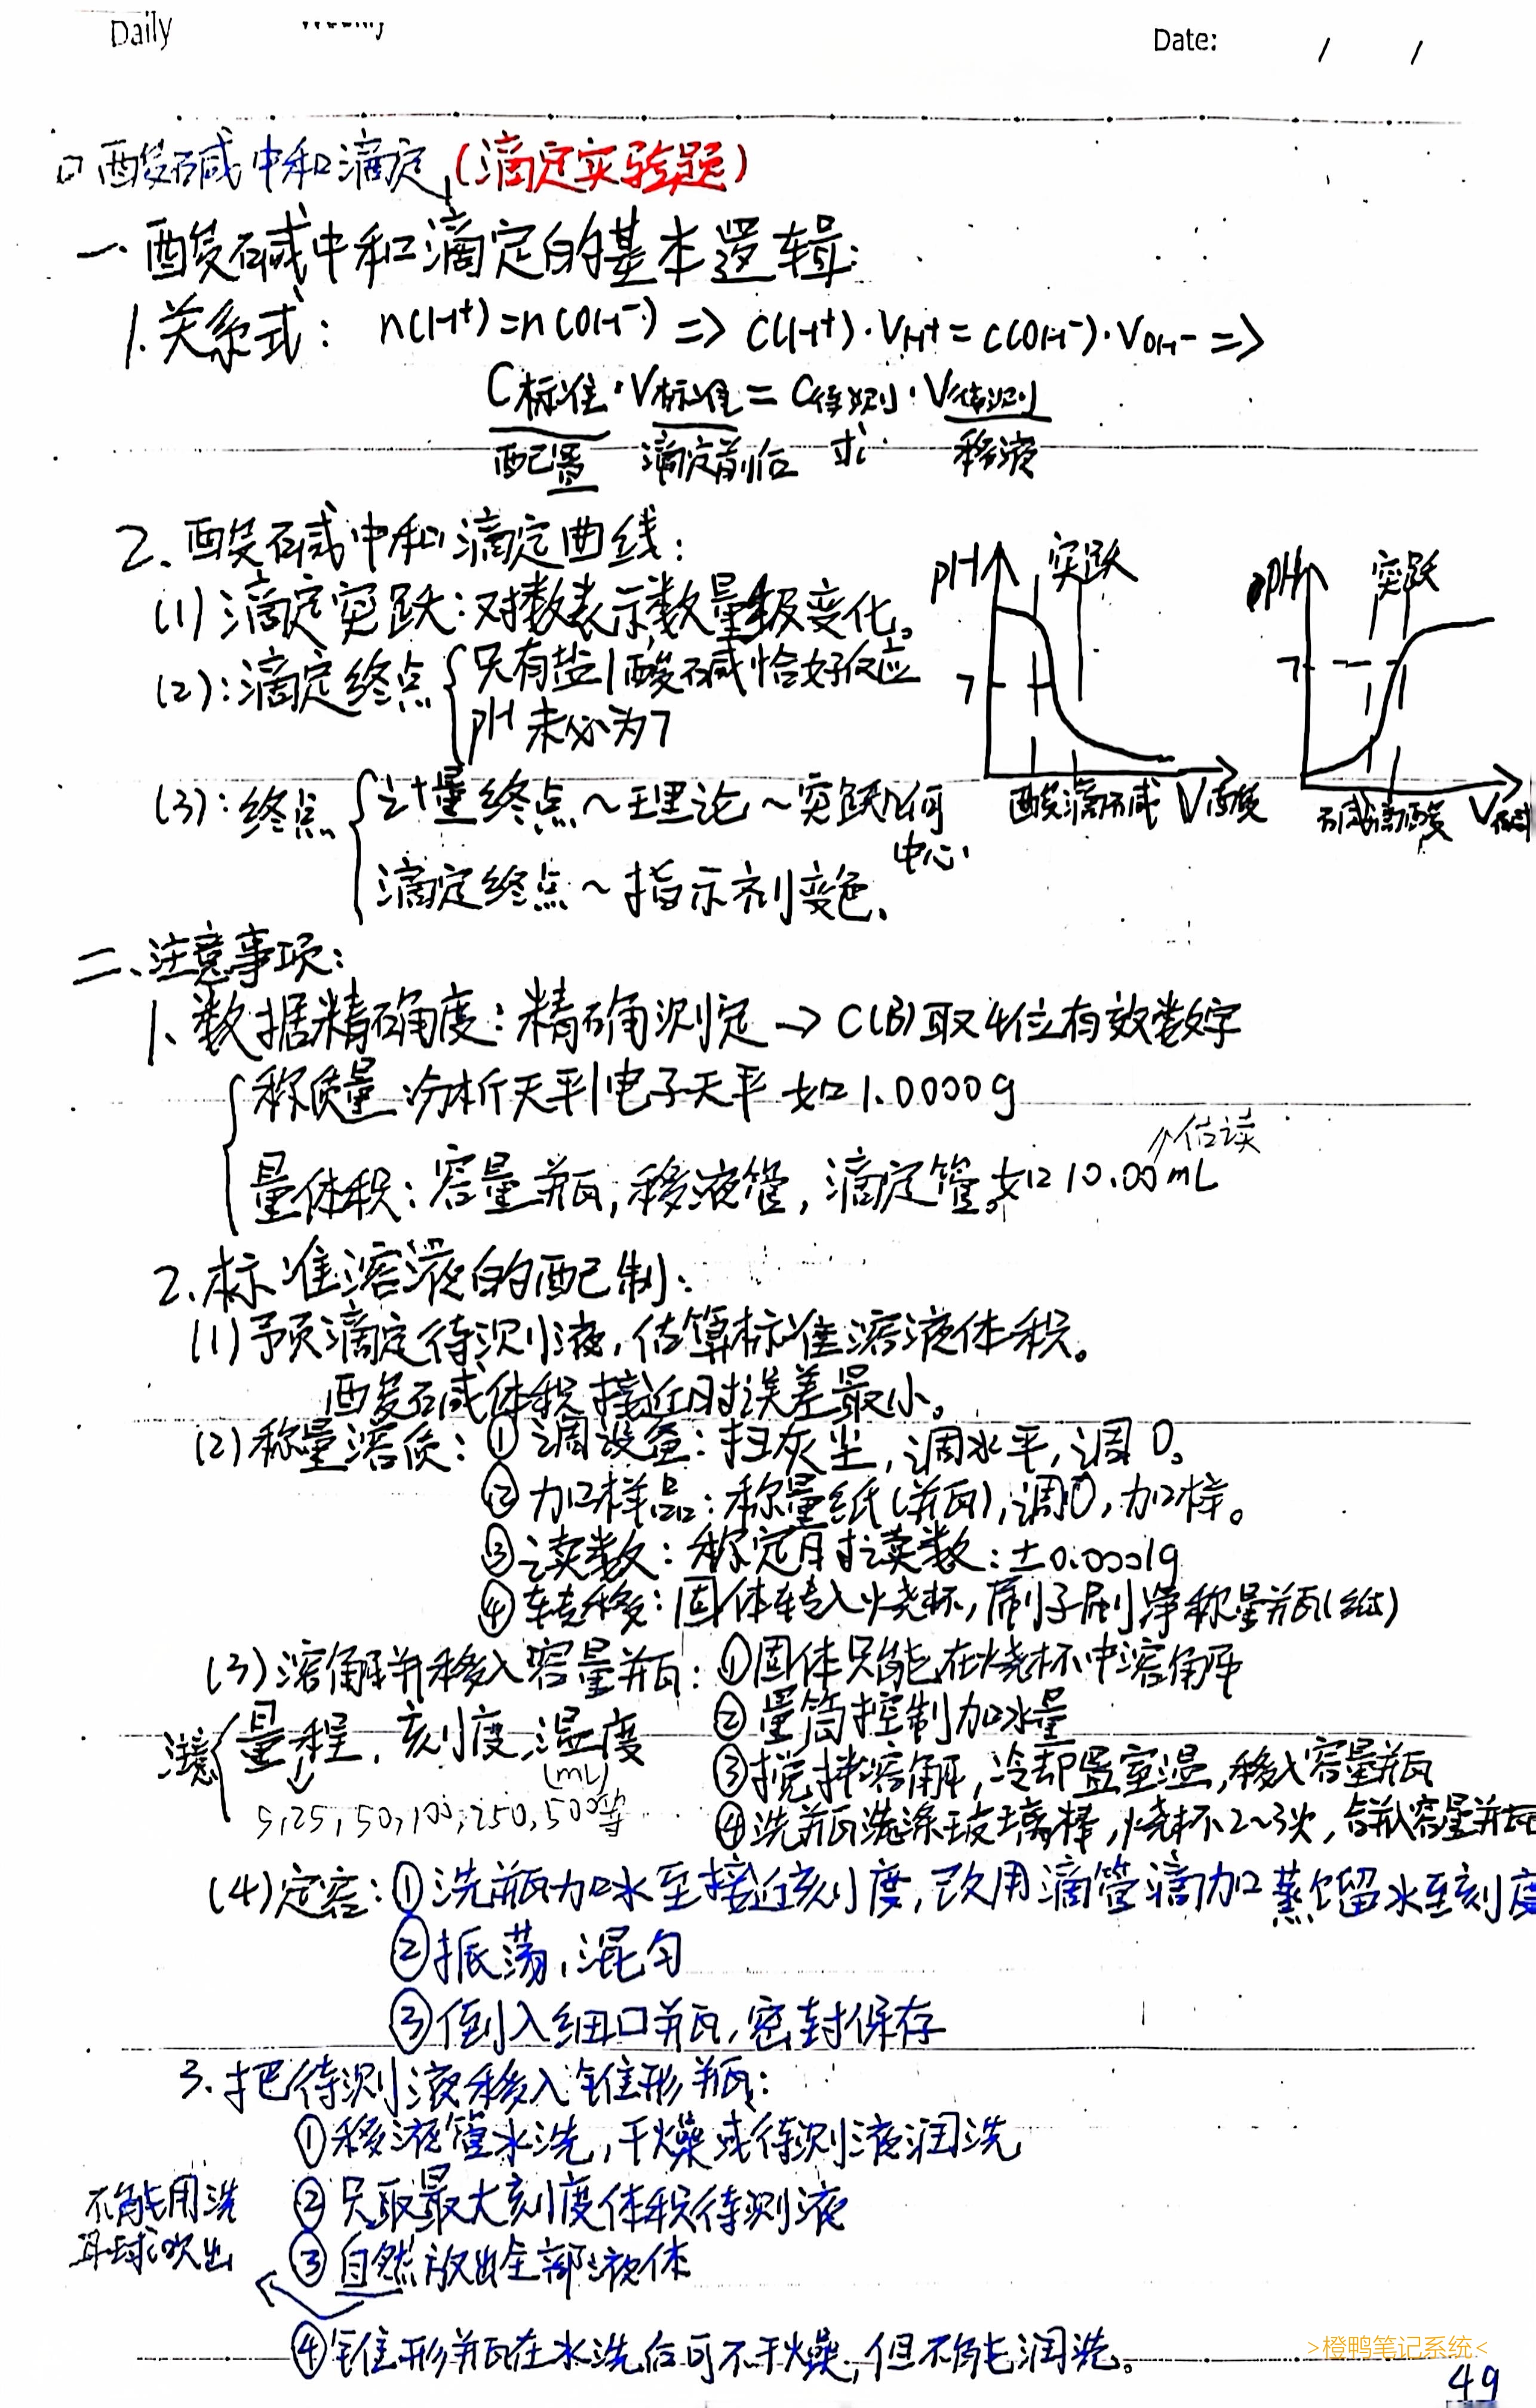 Daily
Date: / /
酸碱中和滴定(滴定实验题)
一.酸碱中和滴定的基本逻辑:
1.关系式: n(H⁺)=n(OH⁻) => C(H⁺)·V_H⁺=C(OH⁻)·V_OH⁻ =>
C标准·V标准=C待测·V待测
配置 滴定前后 求 移液
2.酸碱中和滴定曲线:
(1)滴定突跃:对数表示数量级变化。
(2):滴定终点{只有盐|酸碱恰好反应
pH未必为7
(3):终点{计量终点~理论~突跃几何中心
滴定终点~指示剂变色.
pH 突跃 7 酸滴碱 V酸
pH 突跃 7 碱滴酸 V碱
二、注意事项:
1.数据精确度:精确测定→C(B)取4位有效数字
{称质量:分析天平|电子天平 如1.0000g
估读
量体积:容量瓶,移液管,滴定管。如10.00mL
2.标准溶液的配制:
(1)预滴定待测液,估算标准溶液体积。
酸碱体积接近时误差最小。
(2)称量溶质:①调设备:扫灰尘,调水平,调0。
②加样品:称量纸(瓶),调0,加样。
③读数:称定时读数:±0.0001g
④转移:固体转入烧杯,刷子刷净称量瓶(纸)
(3)溶解并移入容量瓶:①固体只能在烧杯中溶解
②量筒控制加水量
③搅拌溶解,冷却置室温,移入容量瓶
④洗瓶洗涤玻璃棒,烧杯2~3次,合并入容量瓶
注意{量程,刻度,温度
(mL)
5,25,50,100,250,500等
(4)定容:①洗瓶加水至接近刻度,改用滴管滴加蒸馏水至刻度
②振荡,混匀
③倒入细口瓶,密封保存
3.把待测液移入锥形瓶:
①移液管水洗,干燥或待测液润洗
②只取最大刻度体积待测液
③自然放出全部液体
不能用洗
耳球吹出
④锥形瓶在水洗后可不干燥,但不能润洗。
>橙鸭笔记系统<
49